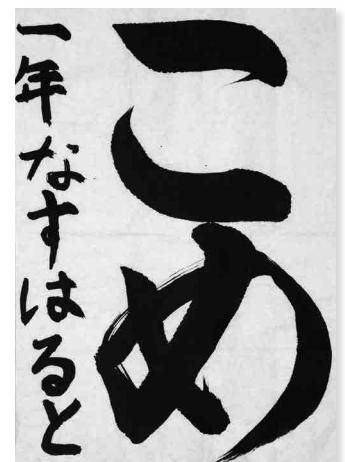 こめ
一年なすはると